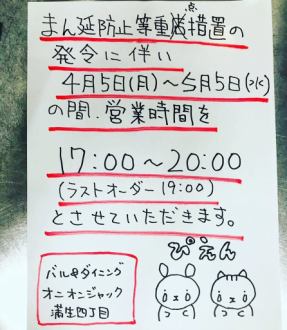 まん延防止等重点措置の
発令に伴い
4月5日(月)〜5月5日(水)
の間、営業時間を
17:00〜20:00
(ラストオーダー19:00)
とさせていただきます。
ぴえん
バル&ダイニング
オニオンジャック
蒲生四丁目